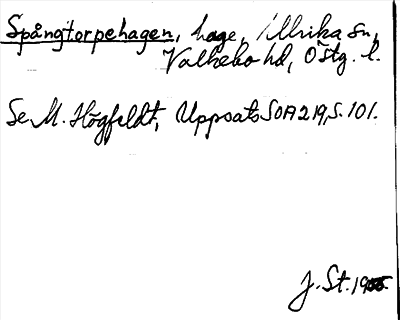 Spångtorpehagen, hage, Ulrika sn,
Valkebo hd, Östg. l.
Se M. Högfeldt, Uppsats SOA 219, s. 101.
J. St.